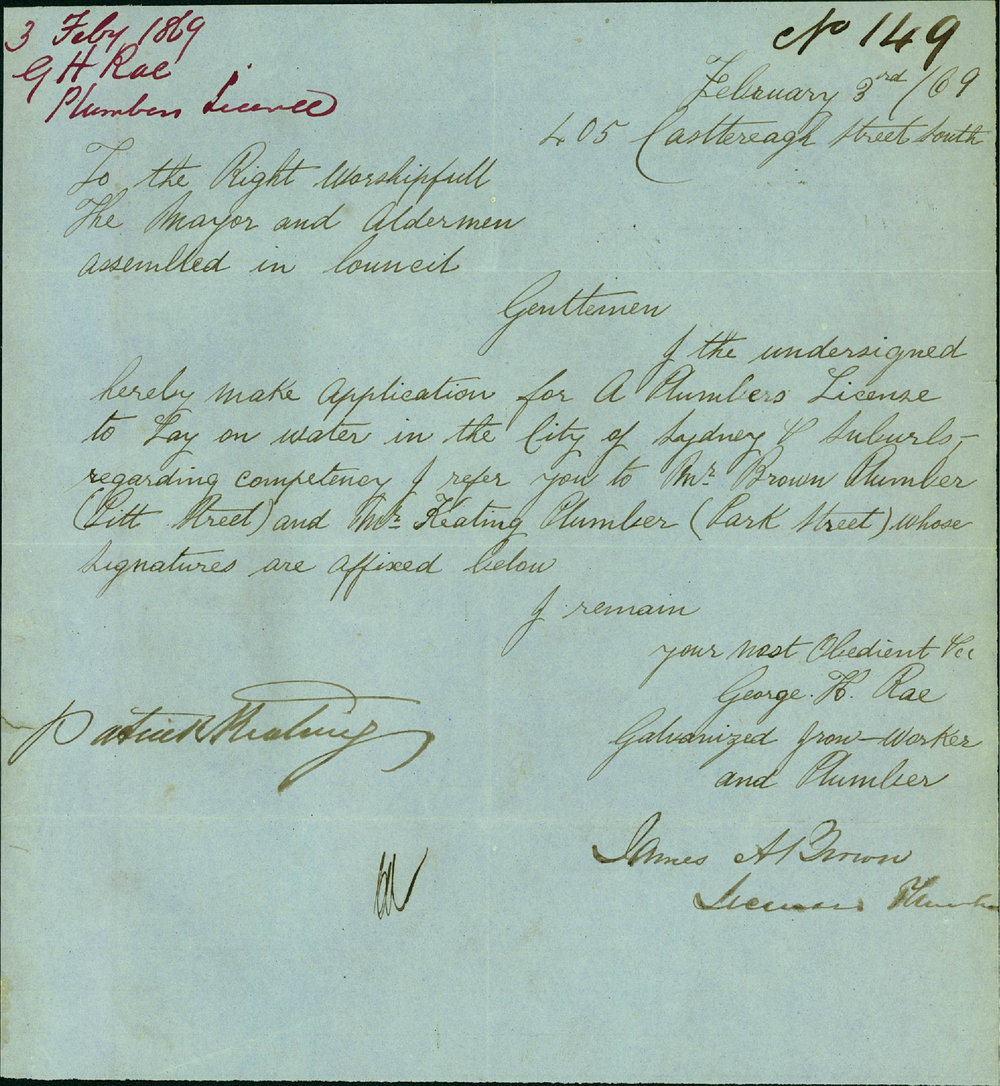 3 Feby 1869
G H Rae
Plumbers Licence
No 149
February 3rd /69
405 Casttereagh Street South
To the Right Worshipfull
The Mayor and Aldermen
assembled in Council
Genttemen
I the undersigned
hereby make Application for A Plumbers License
to Lay on water in the City of Sydney & Suburbs,-
regarding competency I refer you to Mr. Brown Plumber
(Pitt Street) and Mr. Keating Plumber (Park Street) whose
signatures are affixed below
I remain
your most Obedient &c
George. H. Rae
Galvanized Iron-Worker
and Plumber
Patrick Keating
James A Brown